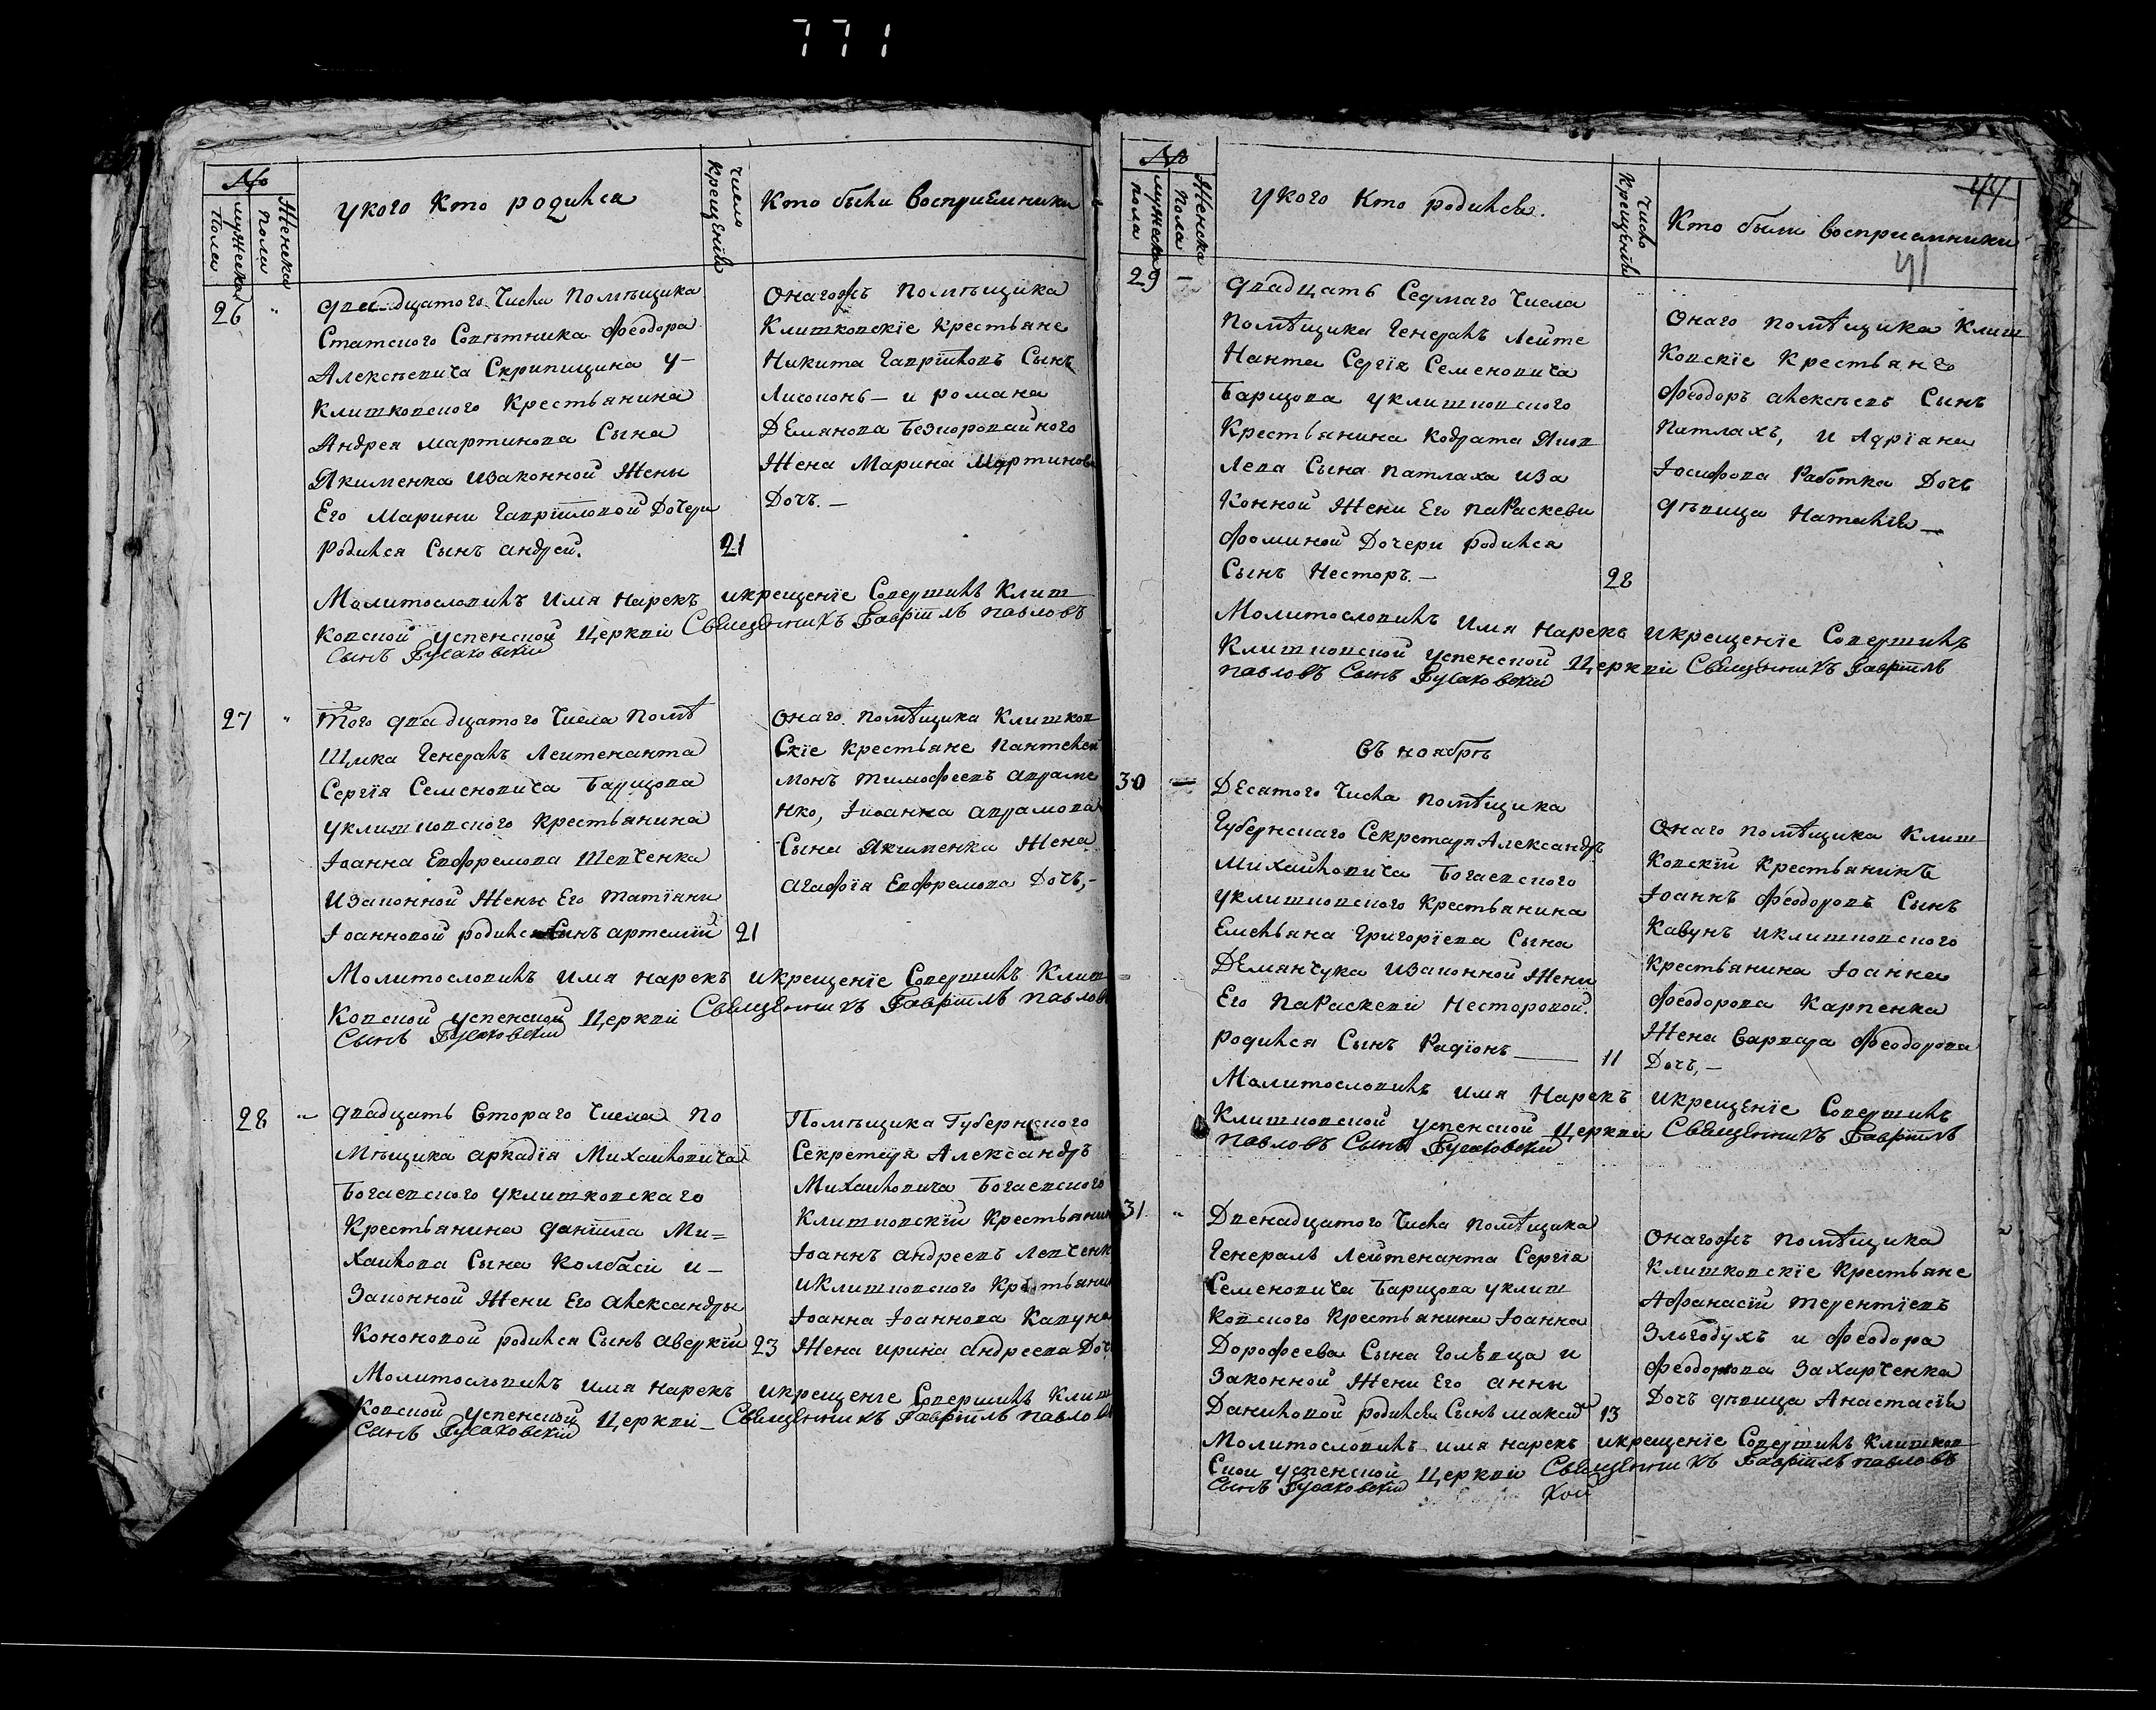 771
№
мужеска пола
Женска пола
У кого кто родился
Число крещенія
Кто были восприемники
26
двадцатого числа помѣщика
Статского Совѣтника Феодора
Алексѣевича Скрипицина у
Клишковского Крестьянина
Андрея мартинова Сына
Якименка изаконной Жены
Его Марини Гавріиловой Дочери
родился Сынъ андрей.
21
Онагожъ помѣщика
Клишковскіе Крестьяне
Никита Гавріиловъ Сынъ
и романа
Демянова
Жена Марина Мартинова
Дочъ.
Молитвословилъ имя нарекъ икрещеніе Совершилъ Клиш
ковской успенской Церкви Священникъ Гавріилъ павловъ
Сынъ Гусаковскій
27
Того двадцатого числа помѣ
щика Генералъ Лейтенанта
Сергія Семеновича Барщова
уклишковского крестьянина
Іоанна Евфремова Шевченка
изаконной Жены Его татіяни
Іоанновой родился Сынъ артемій
21
Онаго помѣщика Клишков
скіе крестьяне Пантелей
монъ тимофеевъ авраме
нко, Іоанна аврамова
Сына Якименка Жена
агафія Евфремова Дочъ,
Молитвословилъ имя нарекъ икрещеніе Совершилъ Клиш
ковской успенской Церкви Священникъ Гавріилъ павловъ
Сынъ Гусаковскій
28
двадцать втораго числа по
мѣщика аркадія Михайловича
Богаевского уклишковскаго
Крестьянина даніила Ми=
хайлова Сына Колбаси и
Законной Жени Его александры
Кононовой родился Сынъ аверкій
23
Помѣщика Губернского
Секретаря Александръ
Михайловича Богаевского
Клишковскій Крестьянин
Іоаннъ андреевъ Левченк
иклишковского Крестьянин
Іоанна Іоаннова Кавуна
Жена ирина андреева Доч
Молитвословилъ имя нарекъ икрещеніе Совершилъ Клиш
ковской успенской Церкви Священникъ Гавріилъ павловъ
Сынъ Гусаковскій
№
мужеска пола
Женска пола
У кого кто родился.
Число Крещенія
Кто были восприемники
44
41
29
двадцать Седмаго числа
помѣщика Генералъ Лейте
нанта Сергія Семеновича
Барщова уклишковского
Крестьянина Кодрата Яков
лева Сына патлаха иза
конной Жени Его параскеви
фоминой Дочери родился
Сынъ Несторъ.
28
Онаго помѣщика Клиш
ковскіе Крестьяне
Феодоръ алексѣевъ Сынъ
патлахъ, и Адріана
Іосифова Работка Дочъ
дѣвица Наталія
Молитвословилъ имя нарекъ икрещеніе Совершилъ
Клишковской успенской Церкви Священникъ Гавріилъ
павловъ Сынъ Гусаковскій
въ ноябрѣ
30
Десятого числа помѣщика
Губернскаго Секретаря Александръ
Михайловича Богаевского
уклишковского Крестьянина
Емельяна Григоріева Сына
Демянчука изаконной Жени
Его параскеви Несторовой.
родился Сынъ Радіонъ
11
Онаго помѣщика Клиш
ковскій Крестьянинъ
Іоаннъ Феодоровъ Сынъ
Кавунъ иклишковского
Крестьянина Іоанна
Феодорова Карпенка
Жена Варвара Феодорова
Дочъ,
Молитвословилъ имя Нарекъ икрещеніе Совершилъ
Клишковской успенской Церкви Священникъ Гавріилъ
павловъ Сынъ Гусаковскій
31
Двенадцатого числа помѣщика
Генералъ Лейтенанта Сергія
Семеновича Барщова уклиш
ковского Крестьянина Іоанна
Дорофеева Сына Голѣвца и
Законной Жени Его анны
Даниловой родился Сынъ максим
13
Онагожъ помѣщика
Клишковскіе Крестьяне
Афанасій терентіевъ
Злыгодухъ и феодора
феодорова Захарченка
Дочъ дѣвица Анастасія
Молитвословилъ имя нарекъ икрещеніе Совершилъ Клишков
ской успенской Церкви Священникъ Гавріилъ павловъ
Сынъ Гусаковскій
Кой